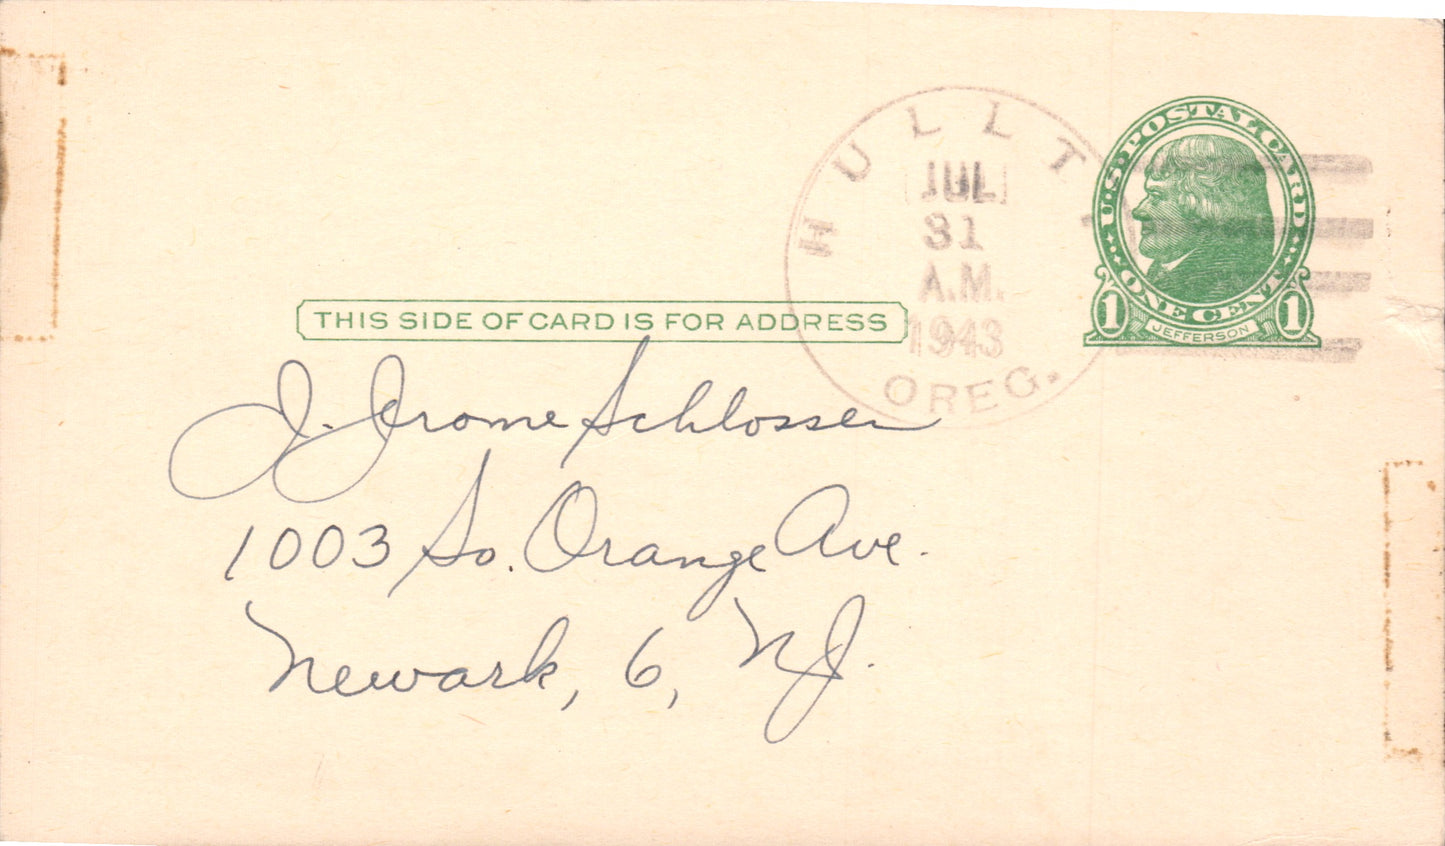 HULLT
JUL
31
A.M.
1943
OREG.
U.S. POSTAL CARD
ONE CENT
1 1
JEFFERSON
THIS SIDE OF CARD IS FOR ADDRESS
J. Jerome Schlosser
1003 So. Orange Ave.
Newark, 6, N.J.